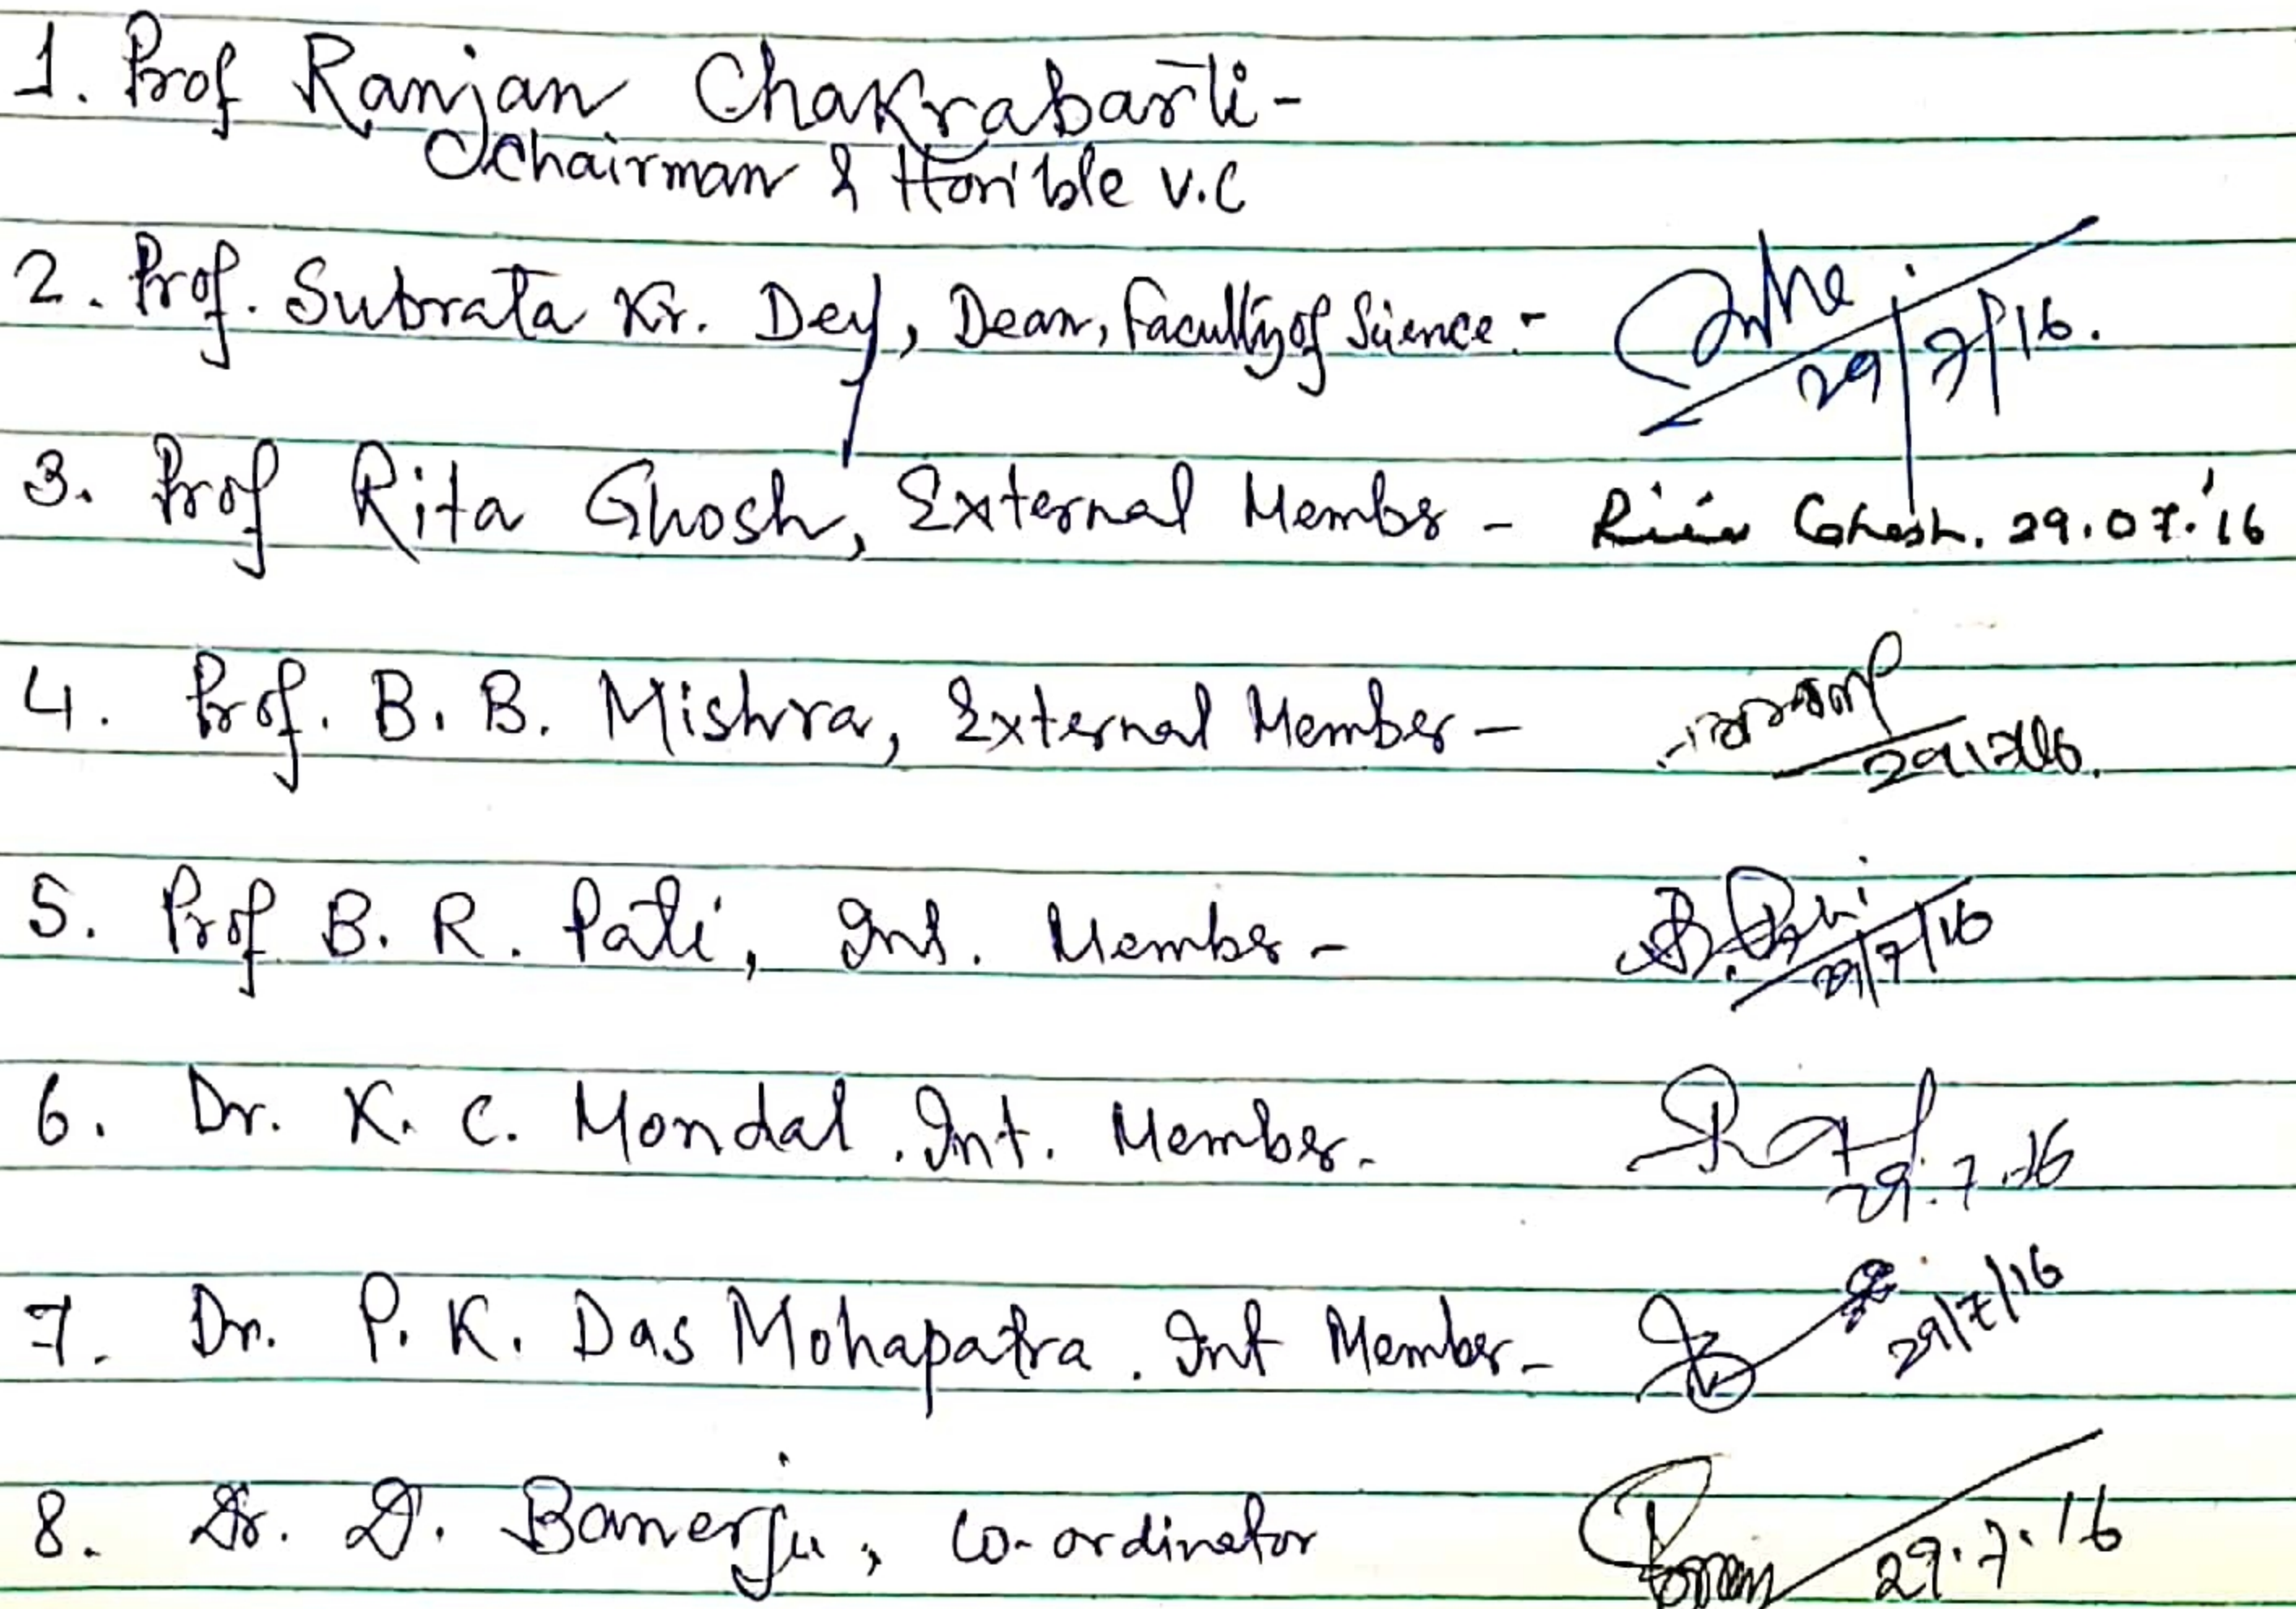 1. Prof Ranjan Chakrabarti-
Chairman & Hon'ble V.C
2. Prof. Subrata Kr. Dey, Dean, Faculty of Science - 29/7/16.
3. Prof Rita Ghosh, External Member - Rita Ghosh. 29.07.'16
4. Prof. B. B. Mishra, External Member - 29/7/16.
5. Prof B. R. Pati, Int. Member - 29/7/16
6. Dr. K. C. Mondal. Int. Member. 29.7.16
7. Dr. P. K. Das Mohapatra. Int Member - 29/7/16
8. Dr. D. Banerjee, Co-ordinator 29.7.16